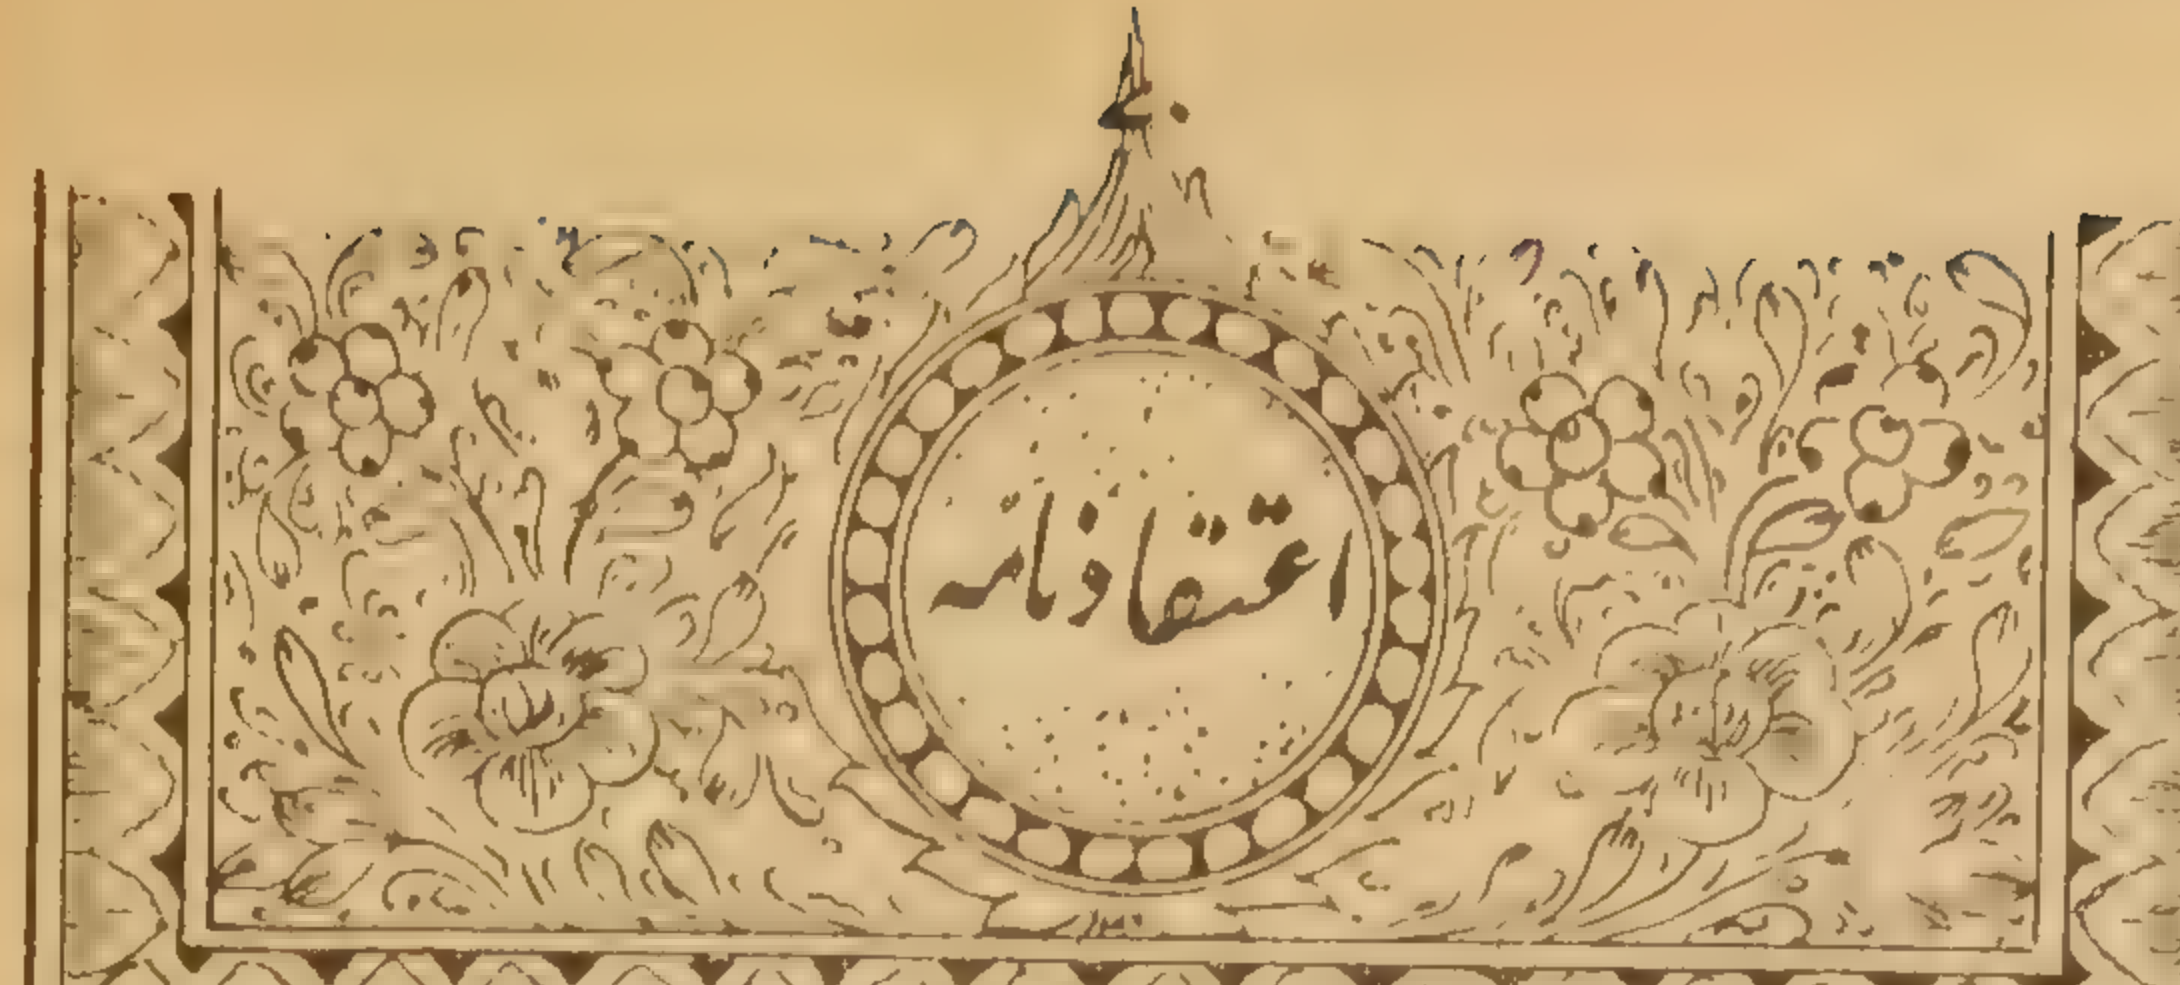 اعتقادنامه